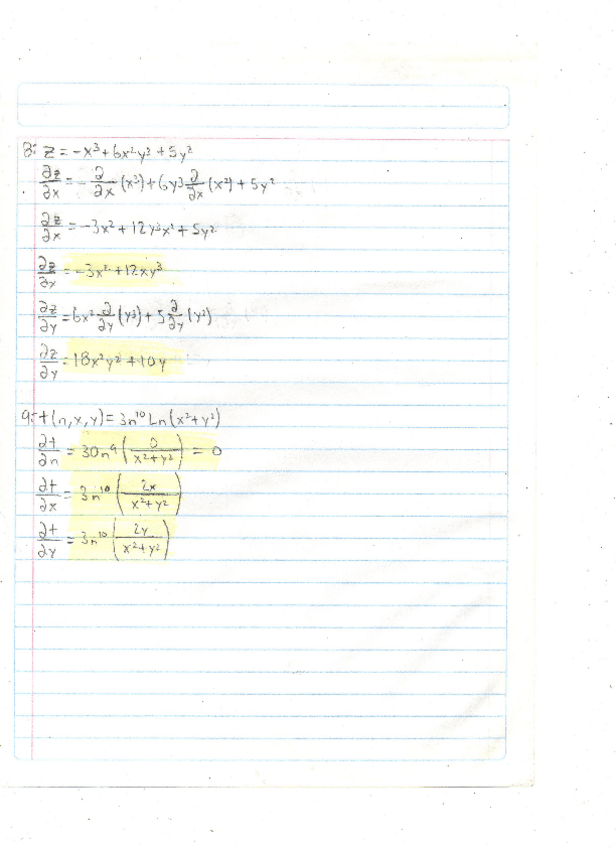 8: z = -x³ + 6x²y³ + 5y²
∂z/∂x = -∂/∂x (x³) + 6y³ ∂/∂x (x²) + 5y²
∂z/∂x = -3x² + 12y³x¹ + 5y²
∂z/∂x = -3x² + 12xy³
∂z/∂y = 6x² ∂/∂y (y³) + 5 ∂/∂y (y²)
∂z/∂y = 18x²y² + 10y
9: t(n,x,y) = 3n¹⁰ Ln(x²+y²)
∂t/∂n = 30n⁹ (0/(x²+y²)) = 0
∂t/∂x = 3n¹⁰ (2x/(x²+y²))
∂t/∂y = 3n¹⁰ (2y/(x²+y²))